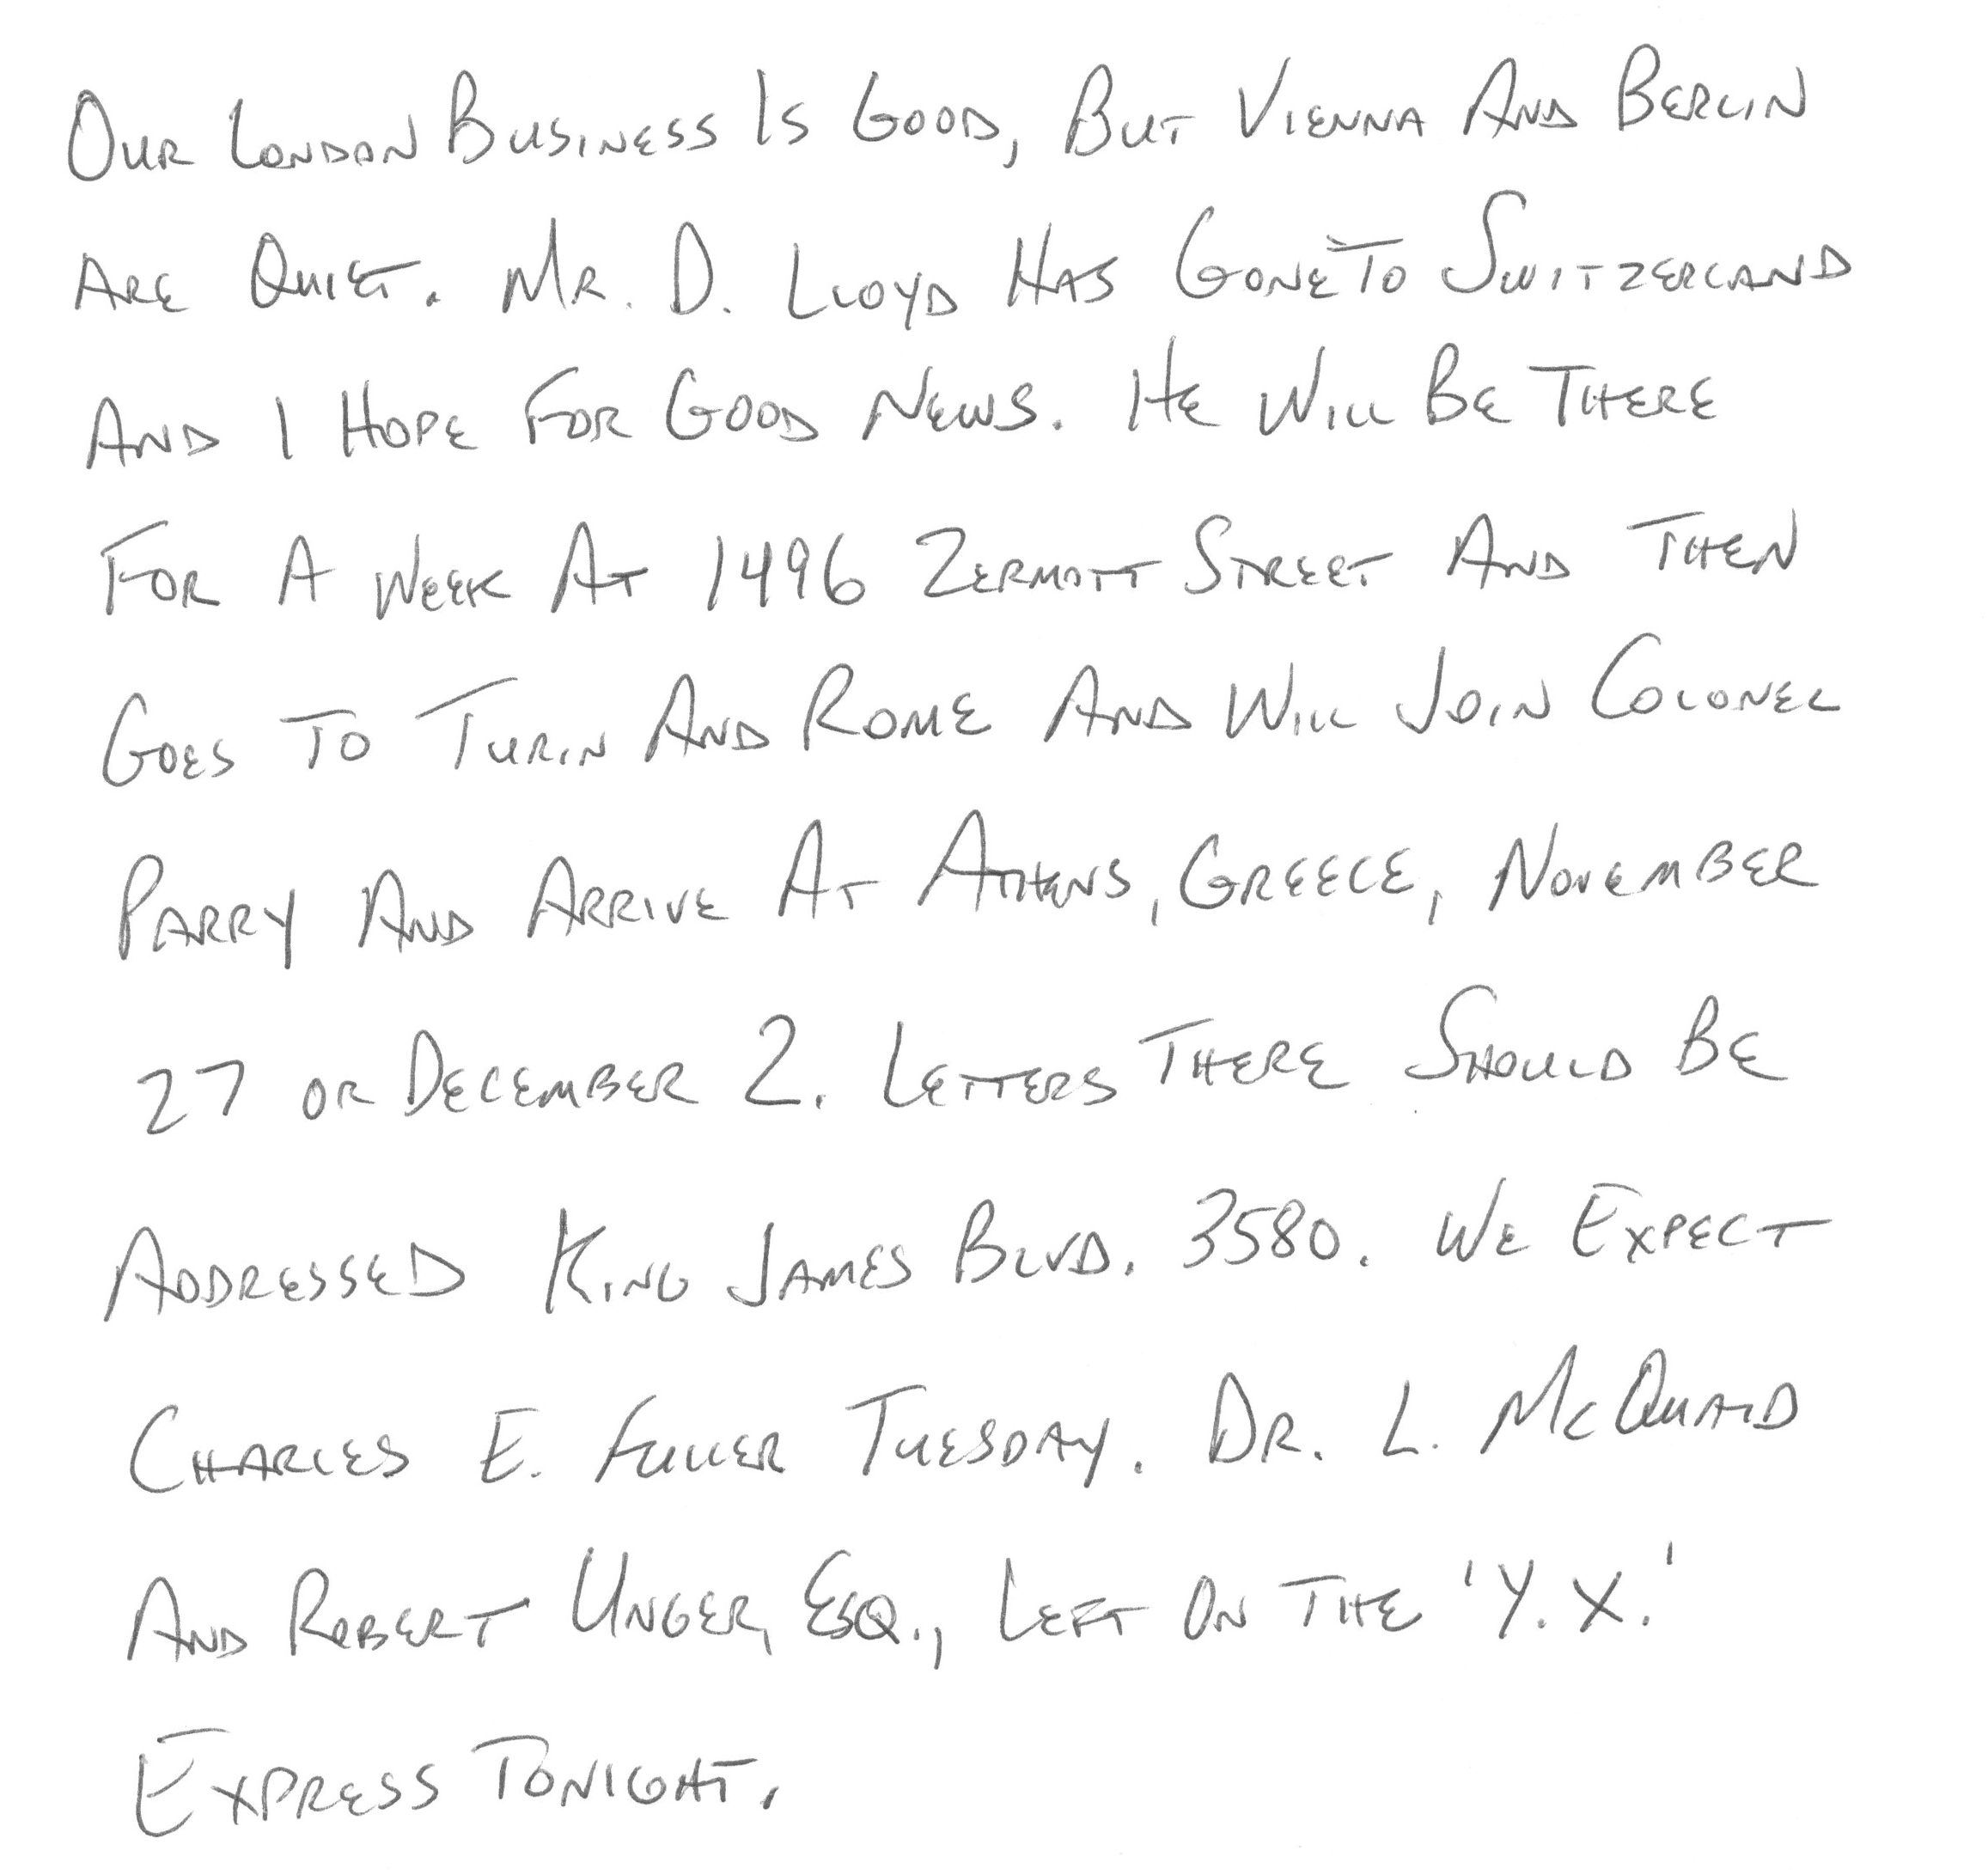 Our London Business Is Good, But Vienna And Berlin
Are Quiet. Mr. D. Lloyd Has Gone To Switzerland
And I Hope For Good News. He Will Be There
For A Week At 1496 Zermott Street And Then
Goes To Turin And Rome And Will Join Colonel
Parry And Arrive At Athens, Greece, November
27 or December 2. Letters There Should Be
Addressed King James Blvd. 3580. We Expect
Charles E. Fuller Tuesday. Dr. L. McQuaid
And Robert Unger, Esq., Left On The 'Y.X.'
Express Tonight.